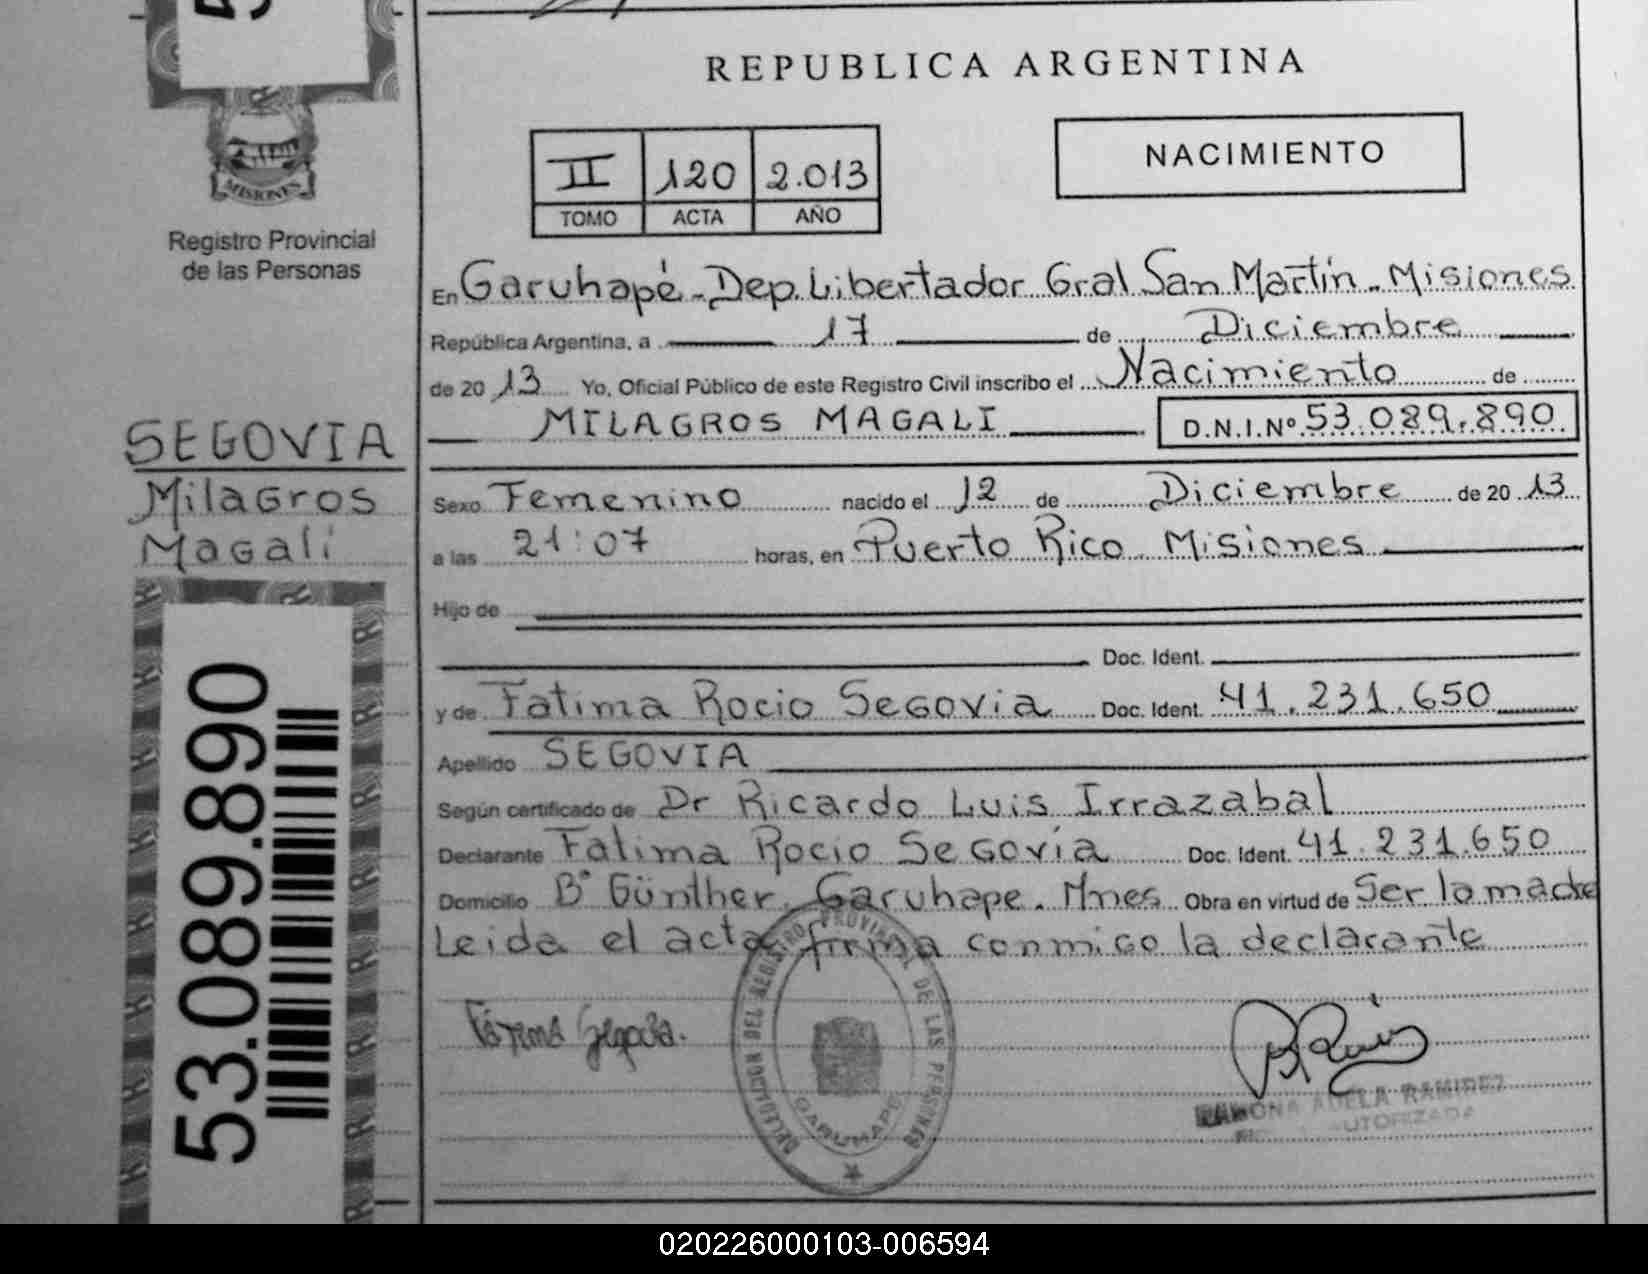 REPUBLICA ARGENTINA
NACIMIENTO
II 120 2.013
TOMO ACTA AÑO
MISIONES
Registro Provincial
de las Personas
En Garuhapé - Dep. Libertador Gral San Martín - Misiones
República Argentina, a 17 de Diciembre
de 20 13 Yo, Oficial Público de este Registro Civil inscribo el Nacimiento de
MILAGROS MAGALI D.N.I.Nº 53.089.890
SEGOVIA
Milagros
Magali
Sexo Femenino nacido el 12 de Diciembre de 20 13
a las 21:07 horas, en Puerto Rico Misiones
Hijo de
Doc. Ident.
y de Fatima Rocio Segovia Doc. Ident. 41.231.650
Apellido SEGOVIA
Según certificado de Dr Ricardo Luis Irrazabal
Declarante Fatima Rocio Segovia Doc. Ident. 41.231.650
Domicilio Bº Günther. Garuhape. Mnes Obra en virtud de Ser la madre
Leida el acta firma conmigo la declarante
53.089.890
Fátima Segovia.
DELEGACION DEL REGISTRO PROVINCIAL DE LAS PERSONAS
GARUHAPE
RAMONA ADELA RAMIREZ
AUTORIZADA
020226000103-006594